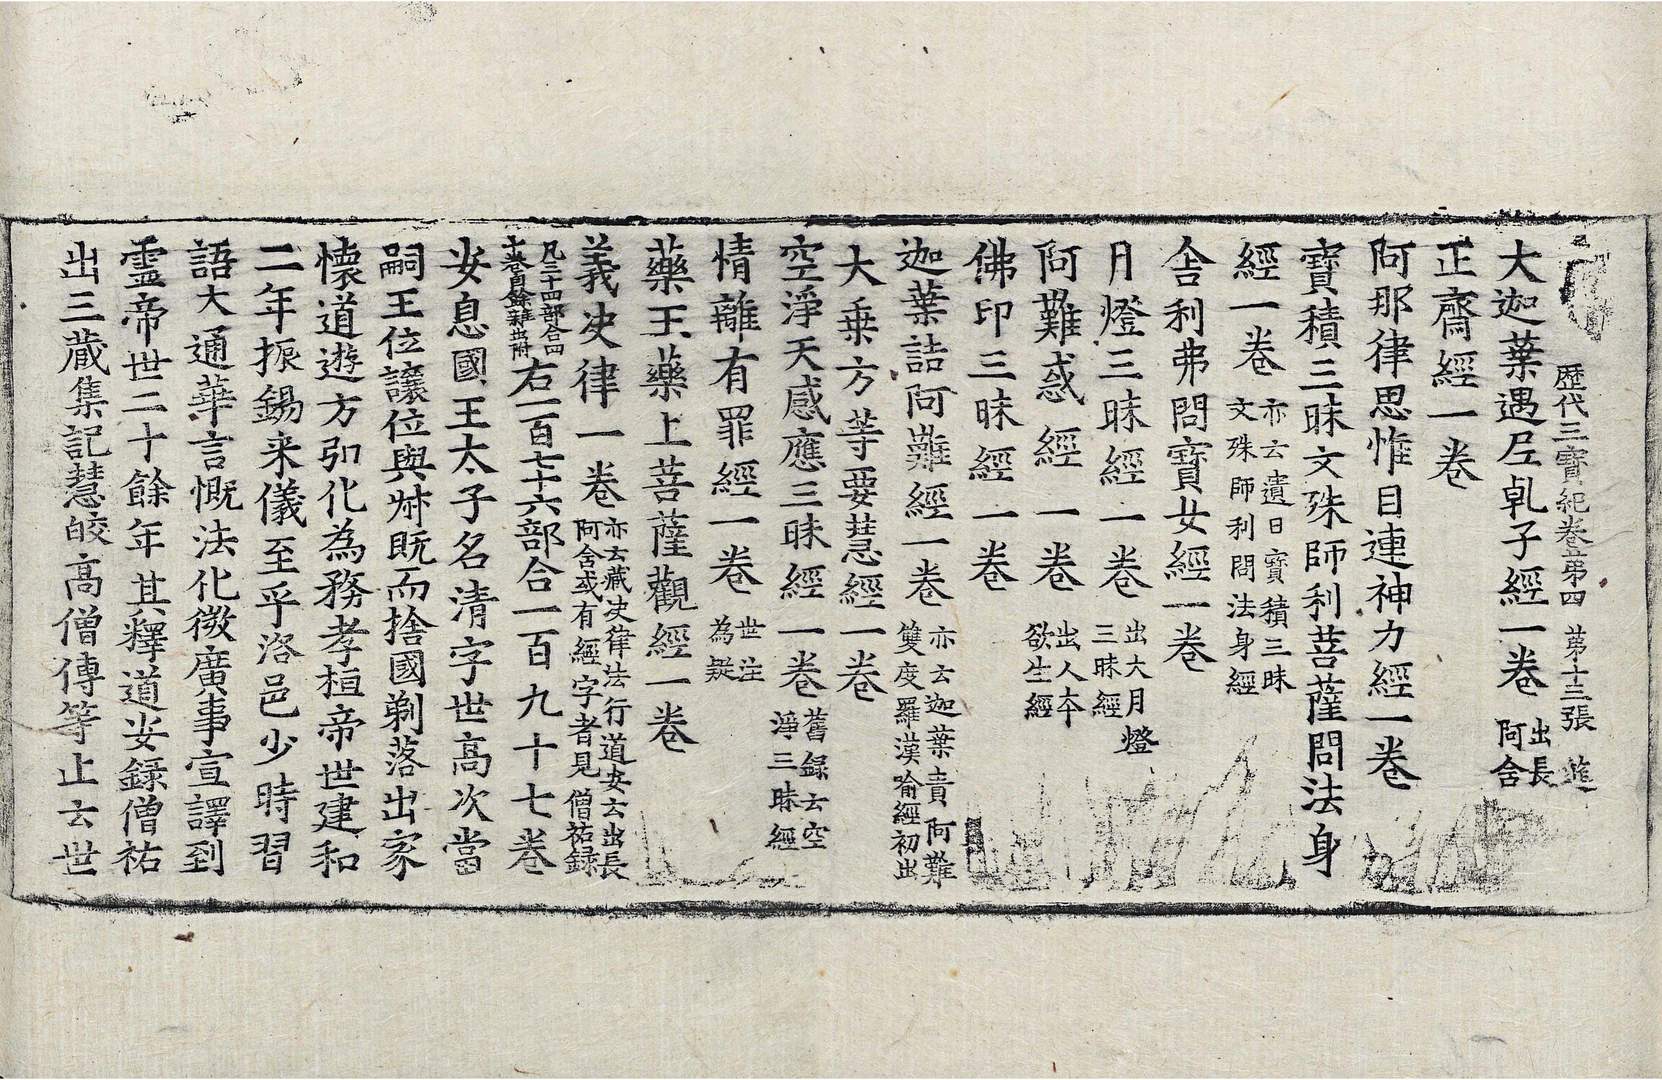 歴代三寳紀卷第四　第十三張　進
大迦葉遇尼乹子經一卷 出長阿含
正齋經一卷
阿那律思惟目連神力經一卷
寳積三昧文殊師利菩薩問法身
經一卷 亦云遺日寳積三昧文殊師利問法身經
舎利弗問寳女經一卷
月燈三昧經一卷 出大月燈三昧經
阿難惑經一卷 出人本欲生經
佛印三昧經一卷
迦葉詰阿難經一卷 亦云迦葉責阿難雙度羅漢喻經初出
大乗方等要慧經一卷
空淨天感應三昧經一卷 舊錄云空淨三昧經
情離有罪經一卷 世注為疑
藥王藥上菩薩觀經一卷
義决律一卷 亦云義决律法行道安云出長阿含或有經字者見僧祐錄
凡三十四部合四十卷自餘雜出附 右一百七十六部合一百九十七卷
安息國王太子名清字世高次當
嗣王位讓位與叔既而捨國剃落出家
懐道遊方弘化為務孝桓帝世建和
二年振錫来儀至乎洛邑少時習
語大通華言慨法化微廣事宣譯到
靈帝世二十餘年其釋道安錄僧祐
出三藏集記慧皎髙僧傳等止云世